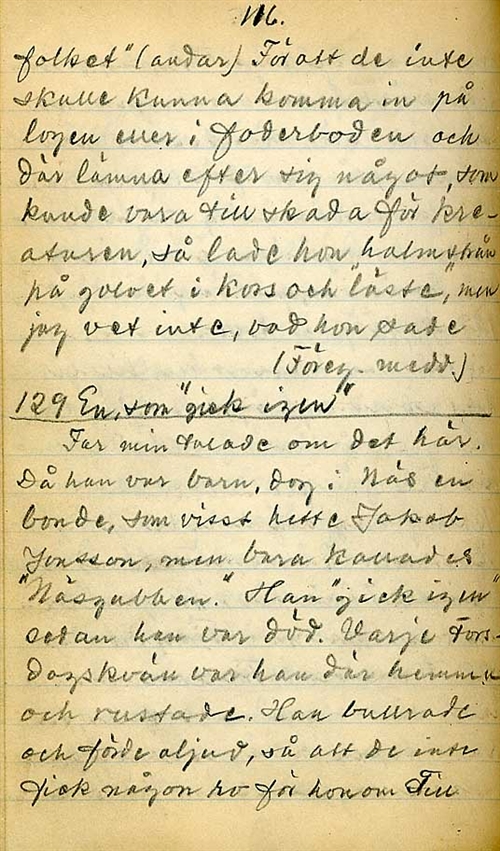 116.
folket" (andar) För att de inte
skulle kunna komma in på
logen eller i foderboden och
där lämna efter sig något, som
kunde vara till skada för kre-
aturen, så lade hon halmstrån
på golvet i kors och "läste", men
jag vet inte, vad hon sade
(Föreg. medd.)
129 En, som "gick igen"
Far min talade om det här.
Då han var barn, dog i Näs en
bonde, som visst hette Jakob
Jonsson, men bara kallades
"Näsgubben." Han "gick igen"
sedan han var död. Varje Tors-
dagskväll var han där hemma
och rustade. Han bullrade
och förde oljud, så att de inte
fick någon ro för honom Till